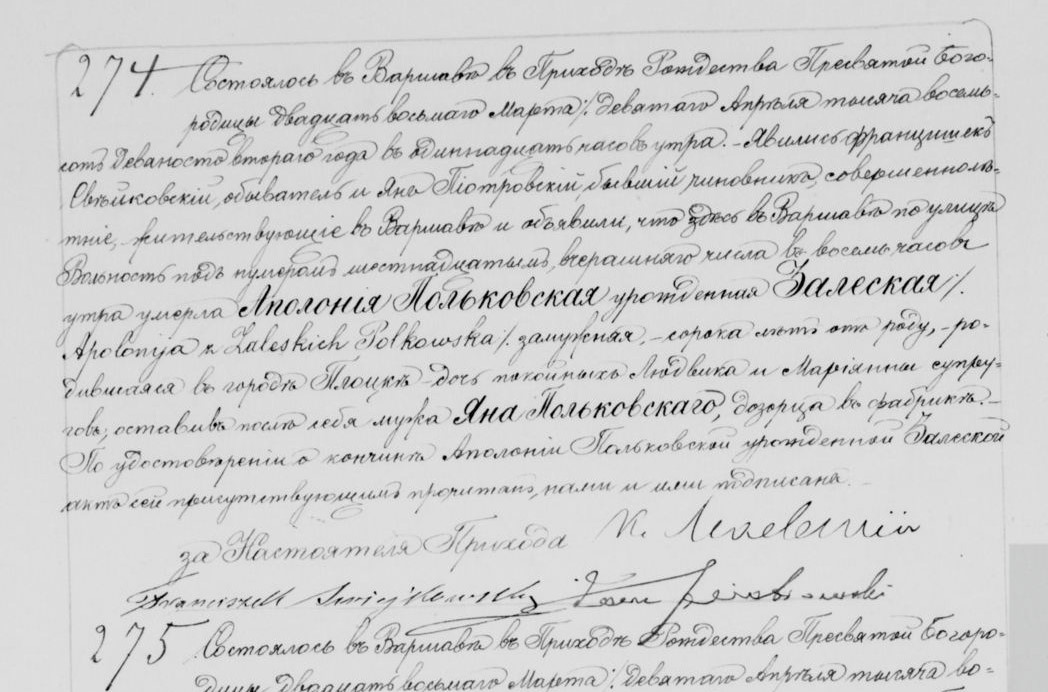 274. Состоялось въ Варшавѣ въ Приходѣ Рождества Пресвятой Бого-
родицы двадцать восьмаго Марта /: девятаго Апрѣля тысяча восемь-
сотъ девяносто втораго года въ одиннадцать часовъ утра. – Явились Францишекъ
Свѣйковскій, обыватель и Янъ Піотровскій, бывшій чиновникъ, совершеннолѣ-
тніе, жительствующіе въ Варшавѣ и объявили, что здѣсь въ Варшавѣ по улицѣ
Вольность подъ нумеромъ шестнадцатымъ, вчерашняго числа въ восемь часовъ
утра умерла Аполонія Польковская урожденная Залеская /:
Apolonija z Zaleskich Polkowska /: замужняя, – сорока лѣтъ отъ роду, – ро-
дившаяся въ городѣ Плоцкѣ – дочь покойныхъ Людвика и Маріянны супру-
говъ; оставивъ послѣ себя мужа Яна Польковскаго, дозорца въ фабрикѣ. –
По удостовѣреніи о кончинѣ Аполоніи Польковской урожденной Залеской
актъ сей присутствующимъ прочитанъ, нами и ими подписанъ. –
за Настоятеля Прихода К.
Franciszek Świejkowski Jan Piotrowski
275 Состоялось въ Варшавѣ въ Приходѣ Рождества Пресвятой Богоро-
дицы двадцать восьмаго Марта /: девятаго Апрѣля тысяча во-